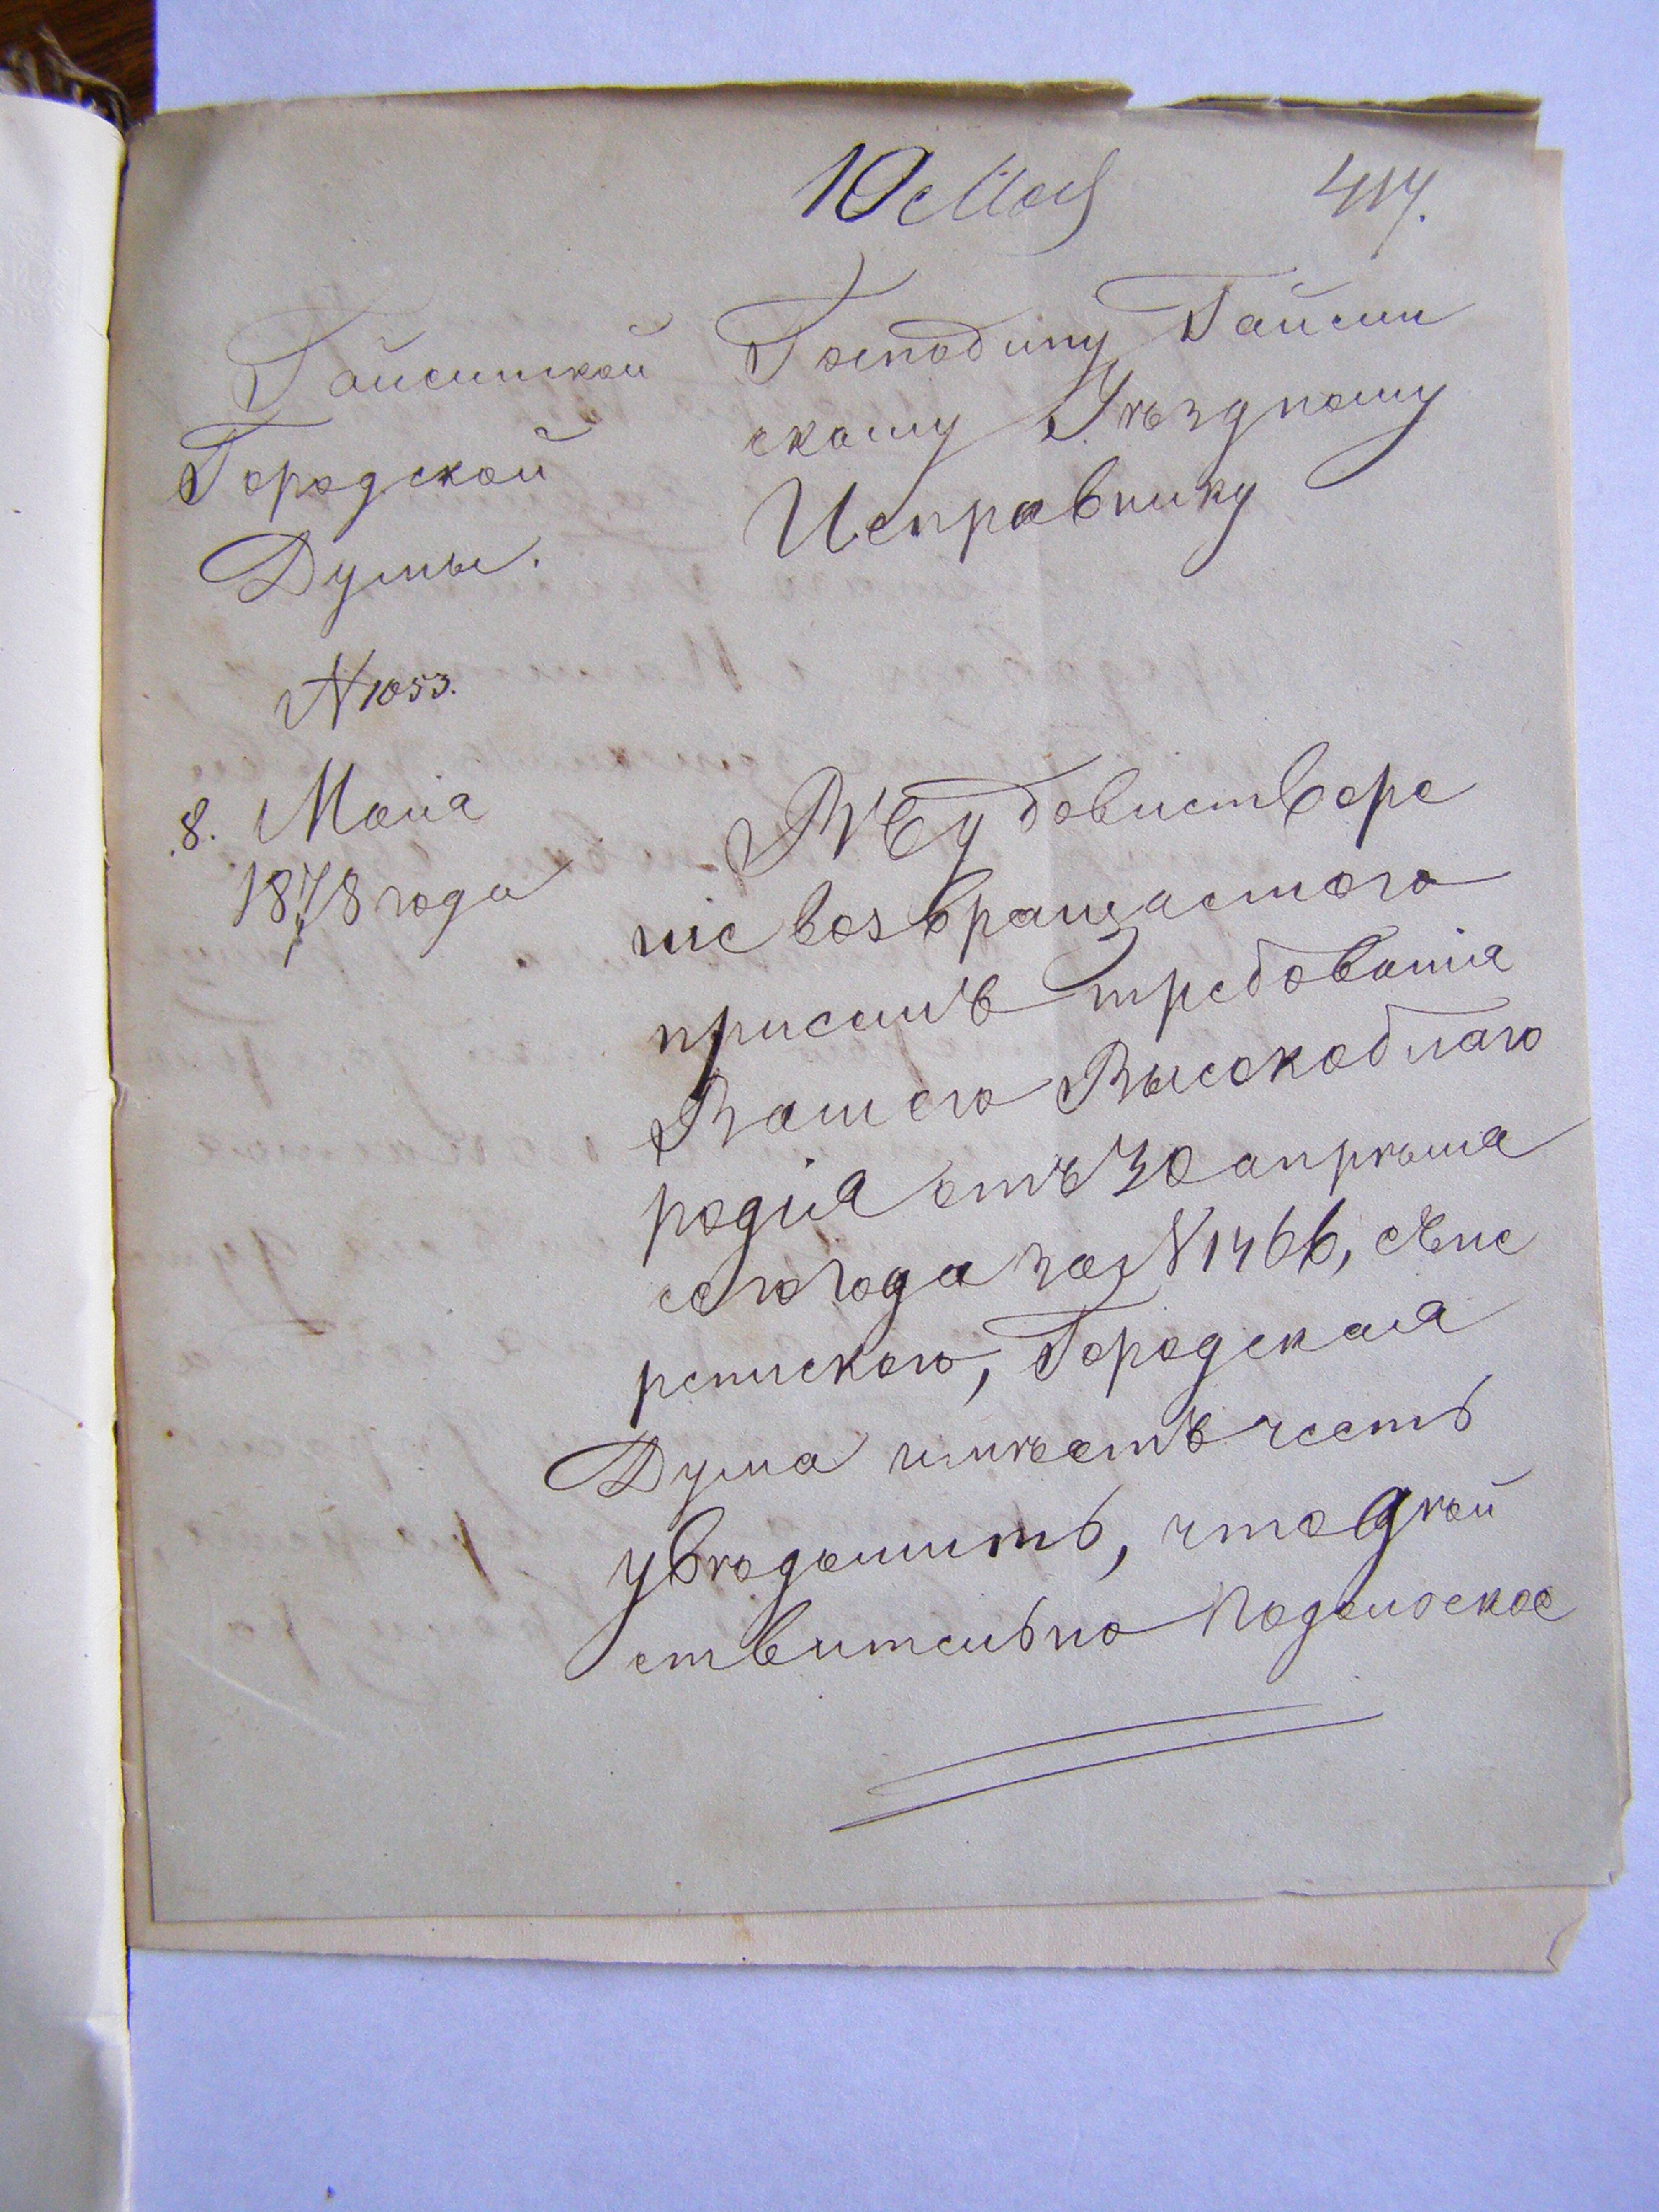 10 Мая
417.
Гайсинской
Городской
Думы.
N 1053.
8. Маія
1878 года
Господину Гайсин
скому Уѣздному
Исправнику
Въ удовлетворе
ніе возвращаемого
присемъ требованія
Вашего Высокоблаго
родія отъ 30 апрѣля
сего года за N 1466, съ пе
репискою, Городская
Дума имѣетъ честь
увѣдомить, что дѣй
ствительно Подольское